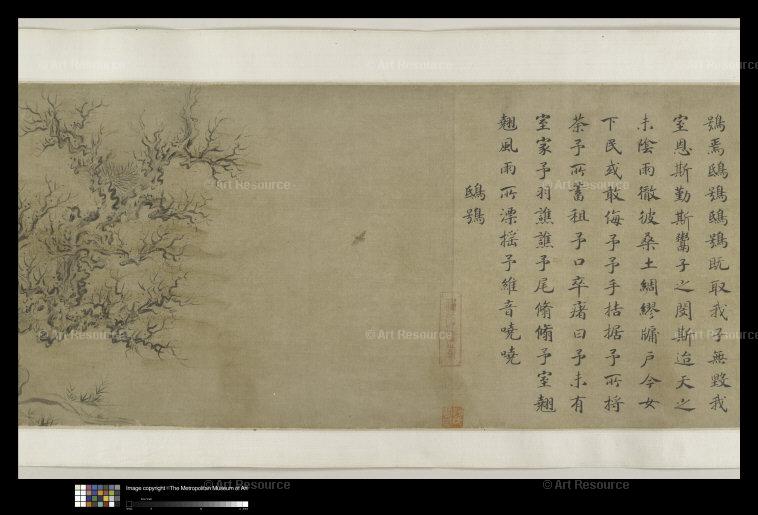 鴞焉鴟鴞鴟鴞既取我子無毀我
室恩斯勤斯鬻子之閔斯迨天之
未陰雨徹彼桑土綢繆牖戶今女
下民或敢侮予予手拮据予所捋
荼予所蓄租予口卒瘏曰予未有
室家予羽譙譙予尾翛翛予室翹
翹風雨所漂搖予維音嘵嘵
鴟鴞
© Art Resource
© Art Resource
© Art Resource
© Art Resource
© Art Resource
© Art Resource
© Art Resource
© Art Resource
Image copyright © The Metropolitan Museum of Art
© Art Resource
© Art Resource